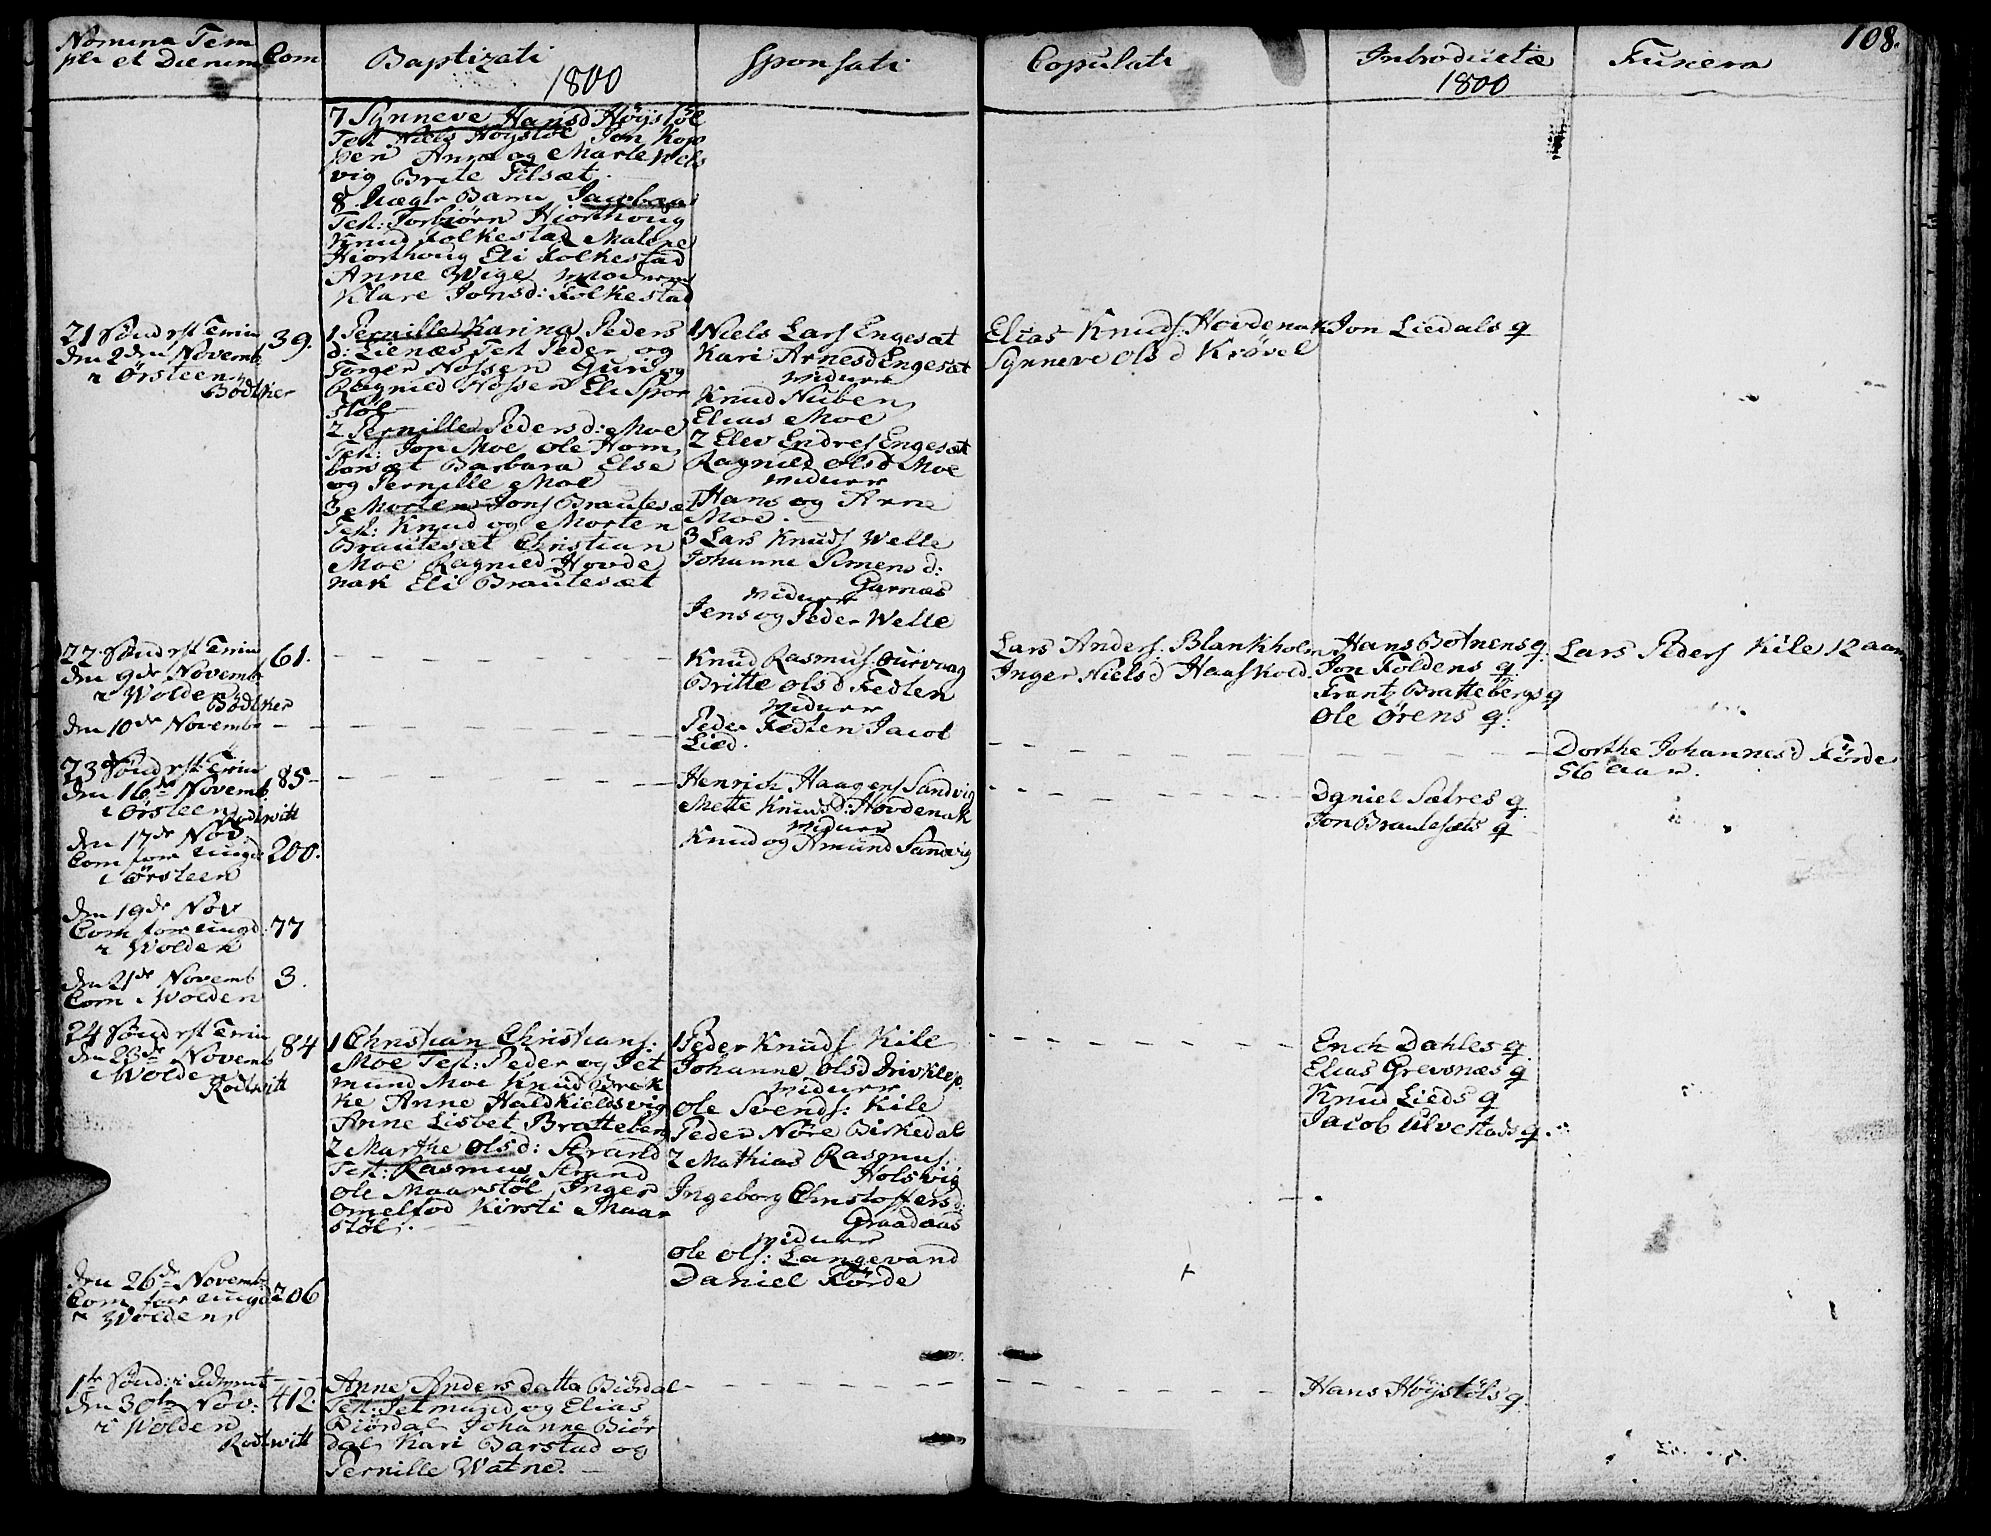 108.
Nomina Tem
pli et Dierum
Com
Baptizati
1800
Sponsati
Copulati
Introductæ
1800
Funera
7 Synneve Hansd Høystøl
Test Niels Høystøl Jon Kop
pen Anne og Marte Wels
vig Brite Tilsæt.
8. Uægte Barn Jacob
Test: Torbiørn Hiorthoug
Knud Folkestad Malene
Hiorthoug Eli Folkestad
Anne Wige Moderen
Klare Jonsd: Folkestad
21 Sønd. p. st Trin
den 2den Novemb
i Ørsteen
Bødtker
39.
1 Pernille Karina Peders
d: Lienæs Test Peder og
Torger Nossen Guri og
Ragnild Nossen Eli Spor
støl
2 Pernille Pedersd: Moe
Test: Jon Moe Ole Hom
bonsæt Barbara Else
og Pernille Moe
3 Morten Jons Brautesæt
Test: Knud og Morten
Brautesæt Christian
Moe Ragnild Hovde
nak Eli Brautesæt
1 Niels Lars Engesæt
Kari Arnesd Engesæt
widuer
Knud Nuben
Elias Moe
2 Elev Endres Engesæt
Ragnild Olsd Moe
widuer
Hans og Arne
Moe.
3 Lars Knuds Welle
Johanne Simensd:
Garnæs
widuer
Jens og Peder Welle
Elias Knuds: Hovdenak
Synneve Olsd Krøvel
Jon Liedals q
22 Sønd p. st Trin
den 9de Novemb
i Wolden
Bødtker
61.
Knud Rasmus Ourvaag
Britte Olsd Fedten
widuer
Peder Fedten Jacob
Lied.
Lars Anders. Blankholm
Inger Nielsd Haaskold
Hans Botnens q.
Jon Foldens q
Frantz Brattebergs q
Ole Ørens q.
Lars Peders Kile 12 aar
den 10de Novemb
Dorthe Johannesd Förde
56 aar.
23 Sønd p. st Trin
den 16de Novemb
i Ørsteen
Rodtwitt
85
Henrich Haagens Sandvig
Mette Knudsd: Hovdenak
widuer
Knud og Amund Sandvig
Daniel Sætres q
Jon Brautesets q
den 17de Nov
Com for ungd
i Ørsteen
200.
den 19de Nov
Com for ungd:
i Wolden
77
den 21de Novemb
Com i Wolden
3.
24 Sønd p. st Trin
den 23de Novemb
i Wolden
Rodtwitt
84
1 Christian Christians:
Moe Test: Peder og Jet
mund Moe Knud Brek
ke Anne Haldkieldsvig
Anne Lisbet Bratteberg
2 Marthe Olsd: Strand
Test: Rasmus Strand
Ole Maarstøl Inger
Omelfod Kirsti Maar
støl.
1 Peder Knuds Kile
Johanne Olsd Drivklep.
widuer
Ole Svends: Kile
Peder Nöre Birkedal
2 Mathias Rasmus
Holsvig
Ingeborg Christoffersd:
Graadaas
widuer
Ole Ols: Langevand
Daniel Förde
Erich Dahles q
Elias Grevsnæs q
Knud Lieds q
Jacob Ulvestads q.
den 26de Novemb
Com for ungd
i Wolden
206
1te Sønd: i Advent
den 30te Nov:
i Wolden
Rodtwitt
412.
Anne Anders datta Biørdal
Test: Jetmund og Elias
Biørdal Johanne Biør
dal Kari Barstad og
Pernille Watne.
Hans Høystøls q.